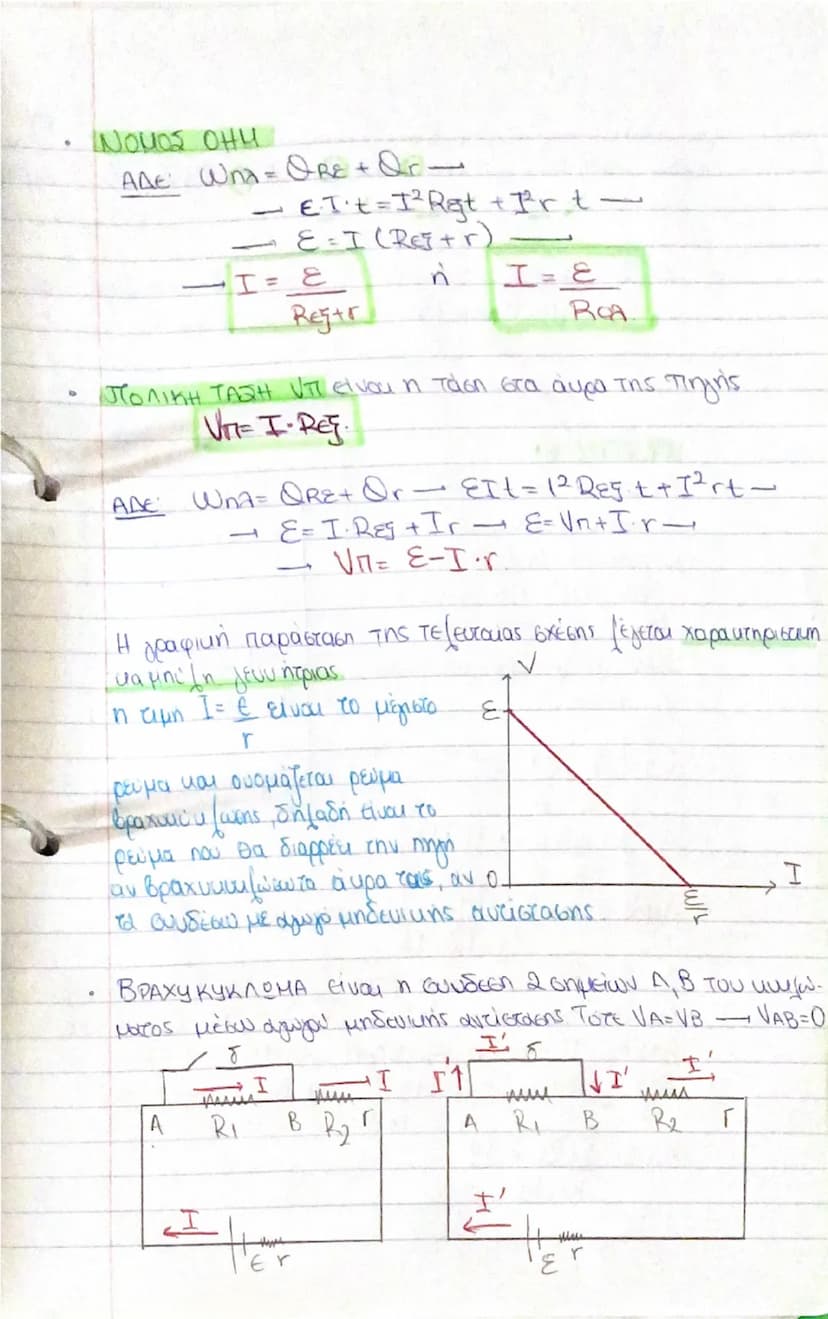 • ΝΟΜΟΣ ΟΗΜ
ΑΔΕ: Wπλ = QRΕ + Qr →
→ ε·I·t = I² Rεξt + I²r t →
→ ε = I (Rεξ + r) →
→ I = ε / Rεξ+r ή I = ε / Rολ
• ΠΟΛΙΚΗ ΤΑΣΗ Vπ είναι η τάση στα άκρα της πηγής
Vπ = I·Rεξ.
ΑΔΕ: Wπλ = QRΕ + Qr → εIt = I² Rεξ t + I²rt →
→ ε = I·Rεξ + Ir → ε = Vπ + I·r →
→ Vπ = ε - I·r.
Η γραφική παράσταση της τελευταίας σχέσης λέγεται χαρακτηριστική
καμπύλη γεννήτριας
η τιμή I = ε / r είναι το μέγιστο
ρεύμα και ονομάζεται ρεύμα
βραχυκύκλωσης, δηλαδή είναι το
ρεύμα που θα διαρρέει την πηγή
αν βραχυκυκλώσω τα άκρα της, αν
τα συνδέσω με αγωγό μηδενικής αντίστασης.
V
ε
0
I
ε / r
• ΒΡΑΧΥΚΥΚΛΩΜΑ είναι η σύνδεση 2 σημείων Α, Β του κυκλώ-
ματος μέσω αγωγού μηδενικής αντίστασης Τότε VA=VB → VAB=0
δ I I
A R1 B R2 Γ
I
ε r
I' δ I' I' I'
A R1 B R2 Γ
I'
ε r